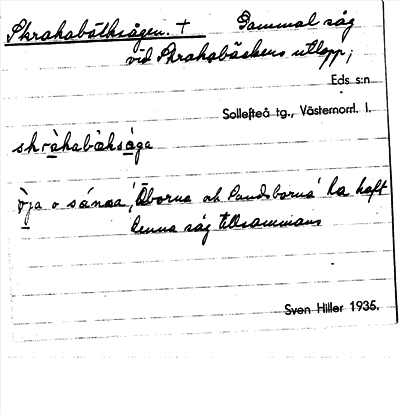 Skrakabäcksågen. + Gammal såg
vid Skrakabäckens utlopp;
Eds s:n
Sollefteå tg., Västernorrl. l.
skràkabàksåga
Åborna och Sandsborna ha haft
denna såg tillsammans
Sven Hiller 1935.